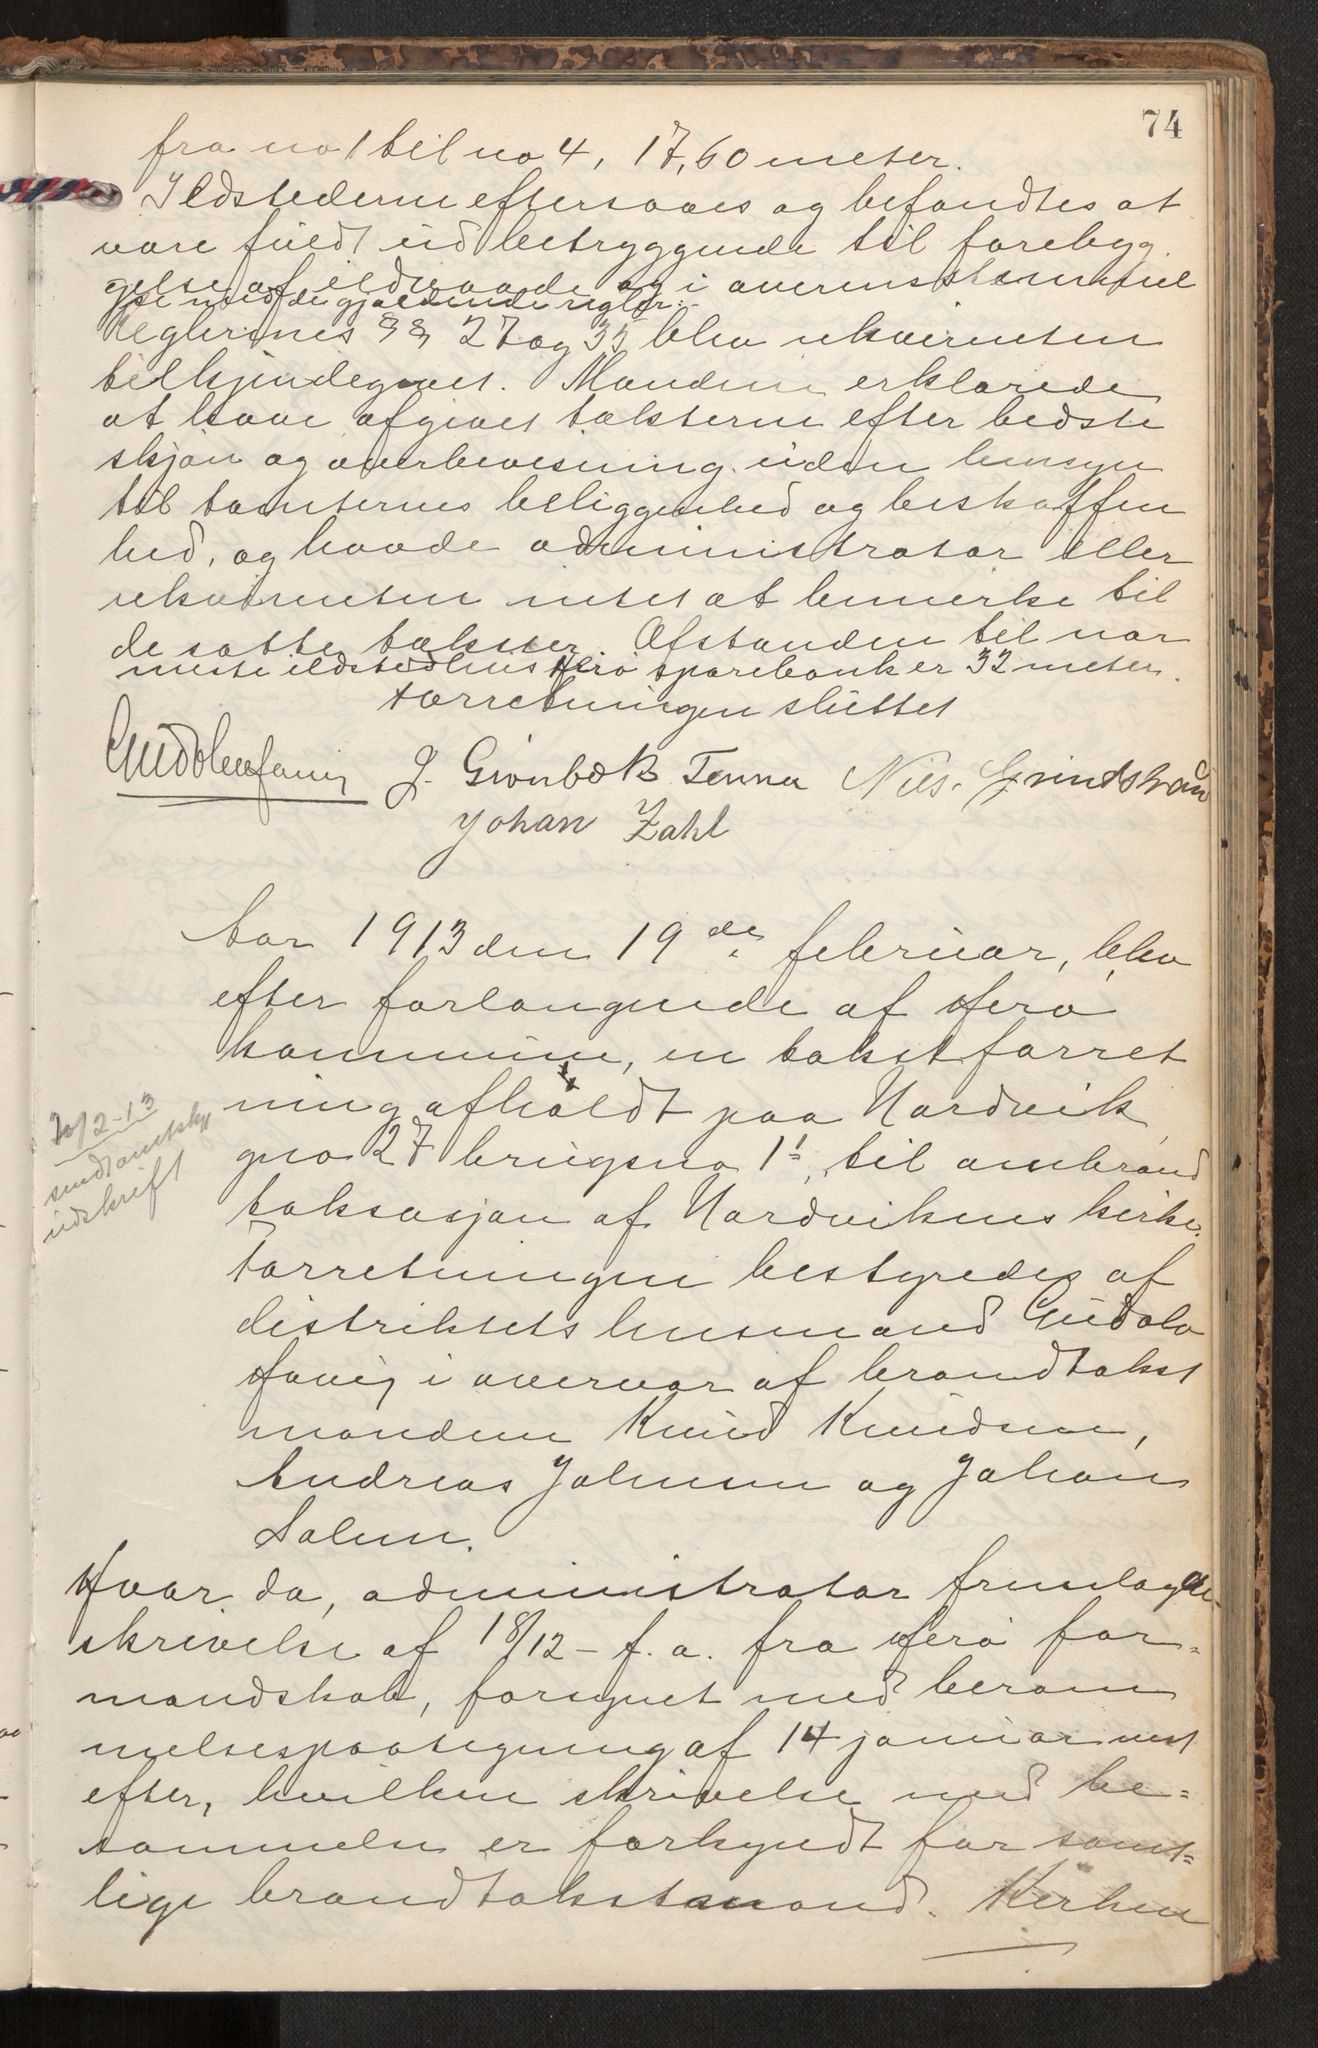 74
fra no 1 til no 4, 17,60 meter.
Ildstederne eftersaaes og befandtes at
være fuldt ud betryggende til forebyg
gelse af ildsvaade og i overensstemmel
se med de gjældende regler.
Reglernes §§ 27 og 35 blev rekvirenten
tilkjendegivet. Mændene erklærede
at have afgivet taksterne efter bedste
skjøn og overbevisning uden hensyn
til tomternes beliggenhed og beskaffen
hed, og havde administrator eller
rekvirenten intet at bemerke til
de satte takster. Afstanden til nær
meste ildstedhus Herø sparebank er 32 meter.
Forretningen sluttet
Gudolv Hovig J. Grönbæk Tenna Nils. Grindstraan
Johan Zahl
Aar 1913 den 19de februar, blev
efter forlangende af Herø
kommune, en takstforret
ning afholdt paa Nordvik
gno 27 brugsno 11, til ombrand
taksasjon af Nordvikens kirke.
Forretningen bestyredes af
distriktets lensmand Gudolv
Hovig i overvær af brandtakst
mændene Knud Knudsen,
Andreas Johnsen og Johan
Solem.
20/2-13
sendt amtsky
udskrift
Hvor da, administrator fremlagde
skrivelse af 18/12 - f. a. fra Herø for=
mandskab, forsynet med beram
melsespaategning af 14 januar næst
efter, hvilken skrivelse med be=
rammelse er forkyndt for samt=
lige brandtakstmænd. Kirken